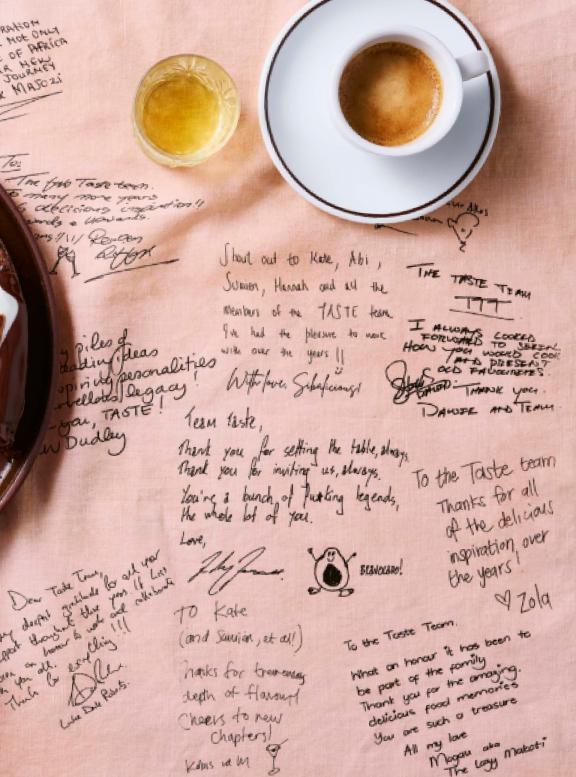 NOT ONLY
OF AFRICA
NEW
JOURNEY
To:
Taste team.
many more years
delicious inspiration!!
Shout out to Kate, Abi,
Hannah and all the
members of the TASTE team
I've had the pleasure to work
with over the years!!
With love,
THE TASTE TEAM
TTT
I ALWAYS LOOKED
FORWARD TO SEEING
HOW YOU WOULD COOK
AND PRESENT
OLD FAVOURITES.
THANK YOU.
AND TEAM.
piles of
ideas
personalities
legacy!
you, TASTE!
Dudley
Team Taste,
Thank you for setting the table, always.
Thank you for inviting us, always.
You're a bunch of legends,
the whole lot of you.
Love,
BRAVOCADO!
To the Taste team
Thanks for all
of the delicious
inspiration over
the years!
Zola
Dear Taste Team,
deepest gratitude for all your
throughout the years
honour to work and collaborate
you all.
Thanks for everything!!!
Luke Dale Roberts.
TO Kate
(and et al!)
Thanks for
depth of flavour!
Cheers to new
chapters!
To the Taste Team.
What an honour it has been to
be part of the family
Thank you for the amazing,
delicious food memories
You are such a treasure
All my love
Mogau aka
The Lazy Makoti